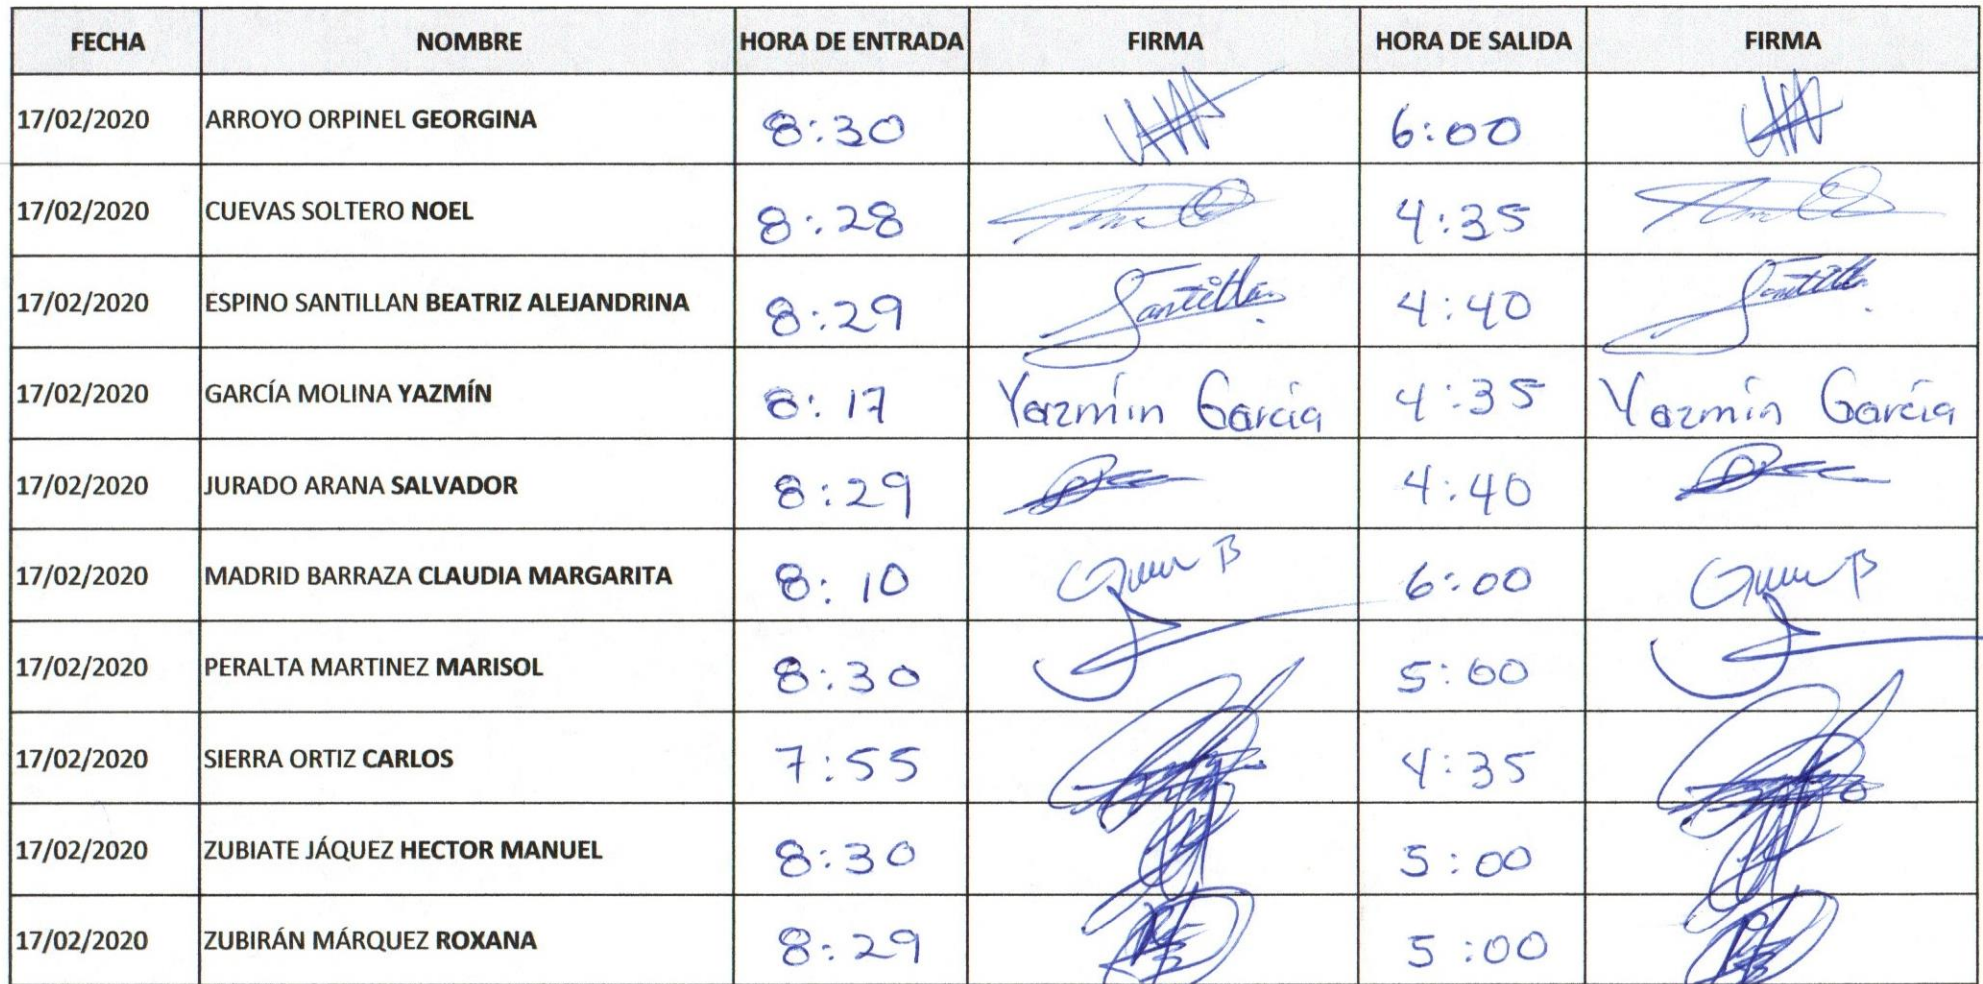 FECHA NOMBRE HORA DE ENTRADA FIRMA HORA DE SALIDA FIRMA
17/02/2020 ARROYO ORPINEL GEORGINA 8:30 6:00
17/02/2020 CUEVAS SOLTERO NOEL 8:28 4:35
17/02/2020 ESPINO SANTILLAN BEATRIZ ALEJANDRINA 8:29 Santillan 4:40 Santillan
17/02/2020 GARCÍA MOLINA YAZMÍN 8:17 Yazmín García 4:35 Yazmín García
17/02/2020 JURADO ARANA SALVADOR 8:29 4:40
17/02/2020 MADRID BARRAZA CLAUDIA MARGARITA 8:10 6:00
17/02/2020 PERALTA MARTINEZ MARISOL 8:30 5:00
17/02/2020 SIERRA ORTIZ CARLOS 7:55 4:35
17/02/2020 ZUBIATE JÁQUEZ HECTOR MANUEL 8:30 5:00
17/02/2020 ZUBIRÁN MÁRQUEZ ROXANA 8:29 5:00